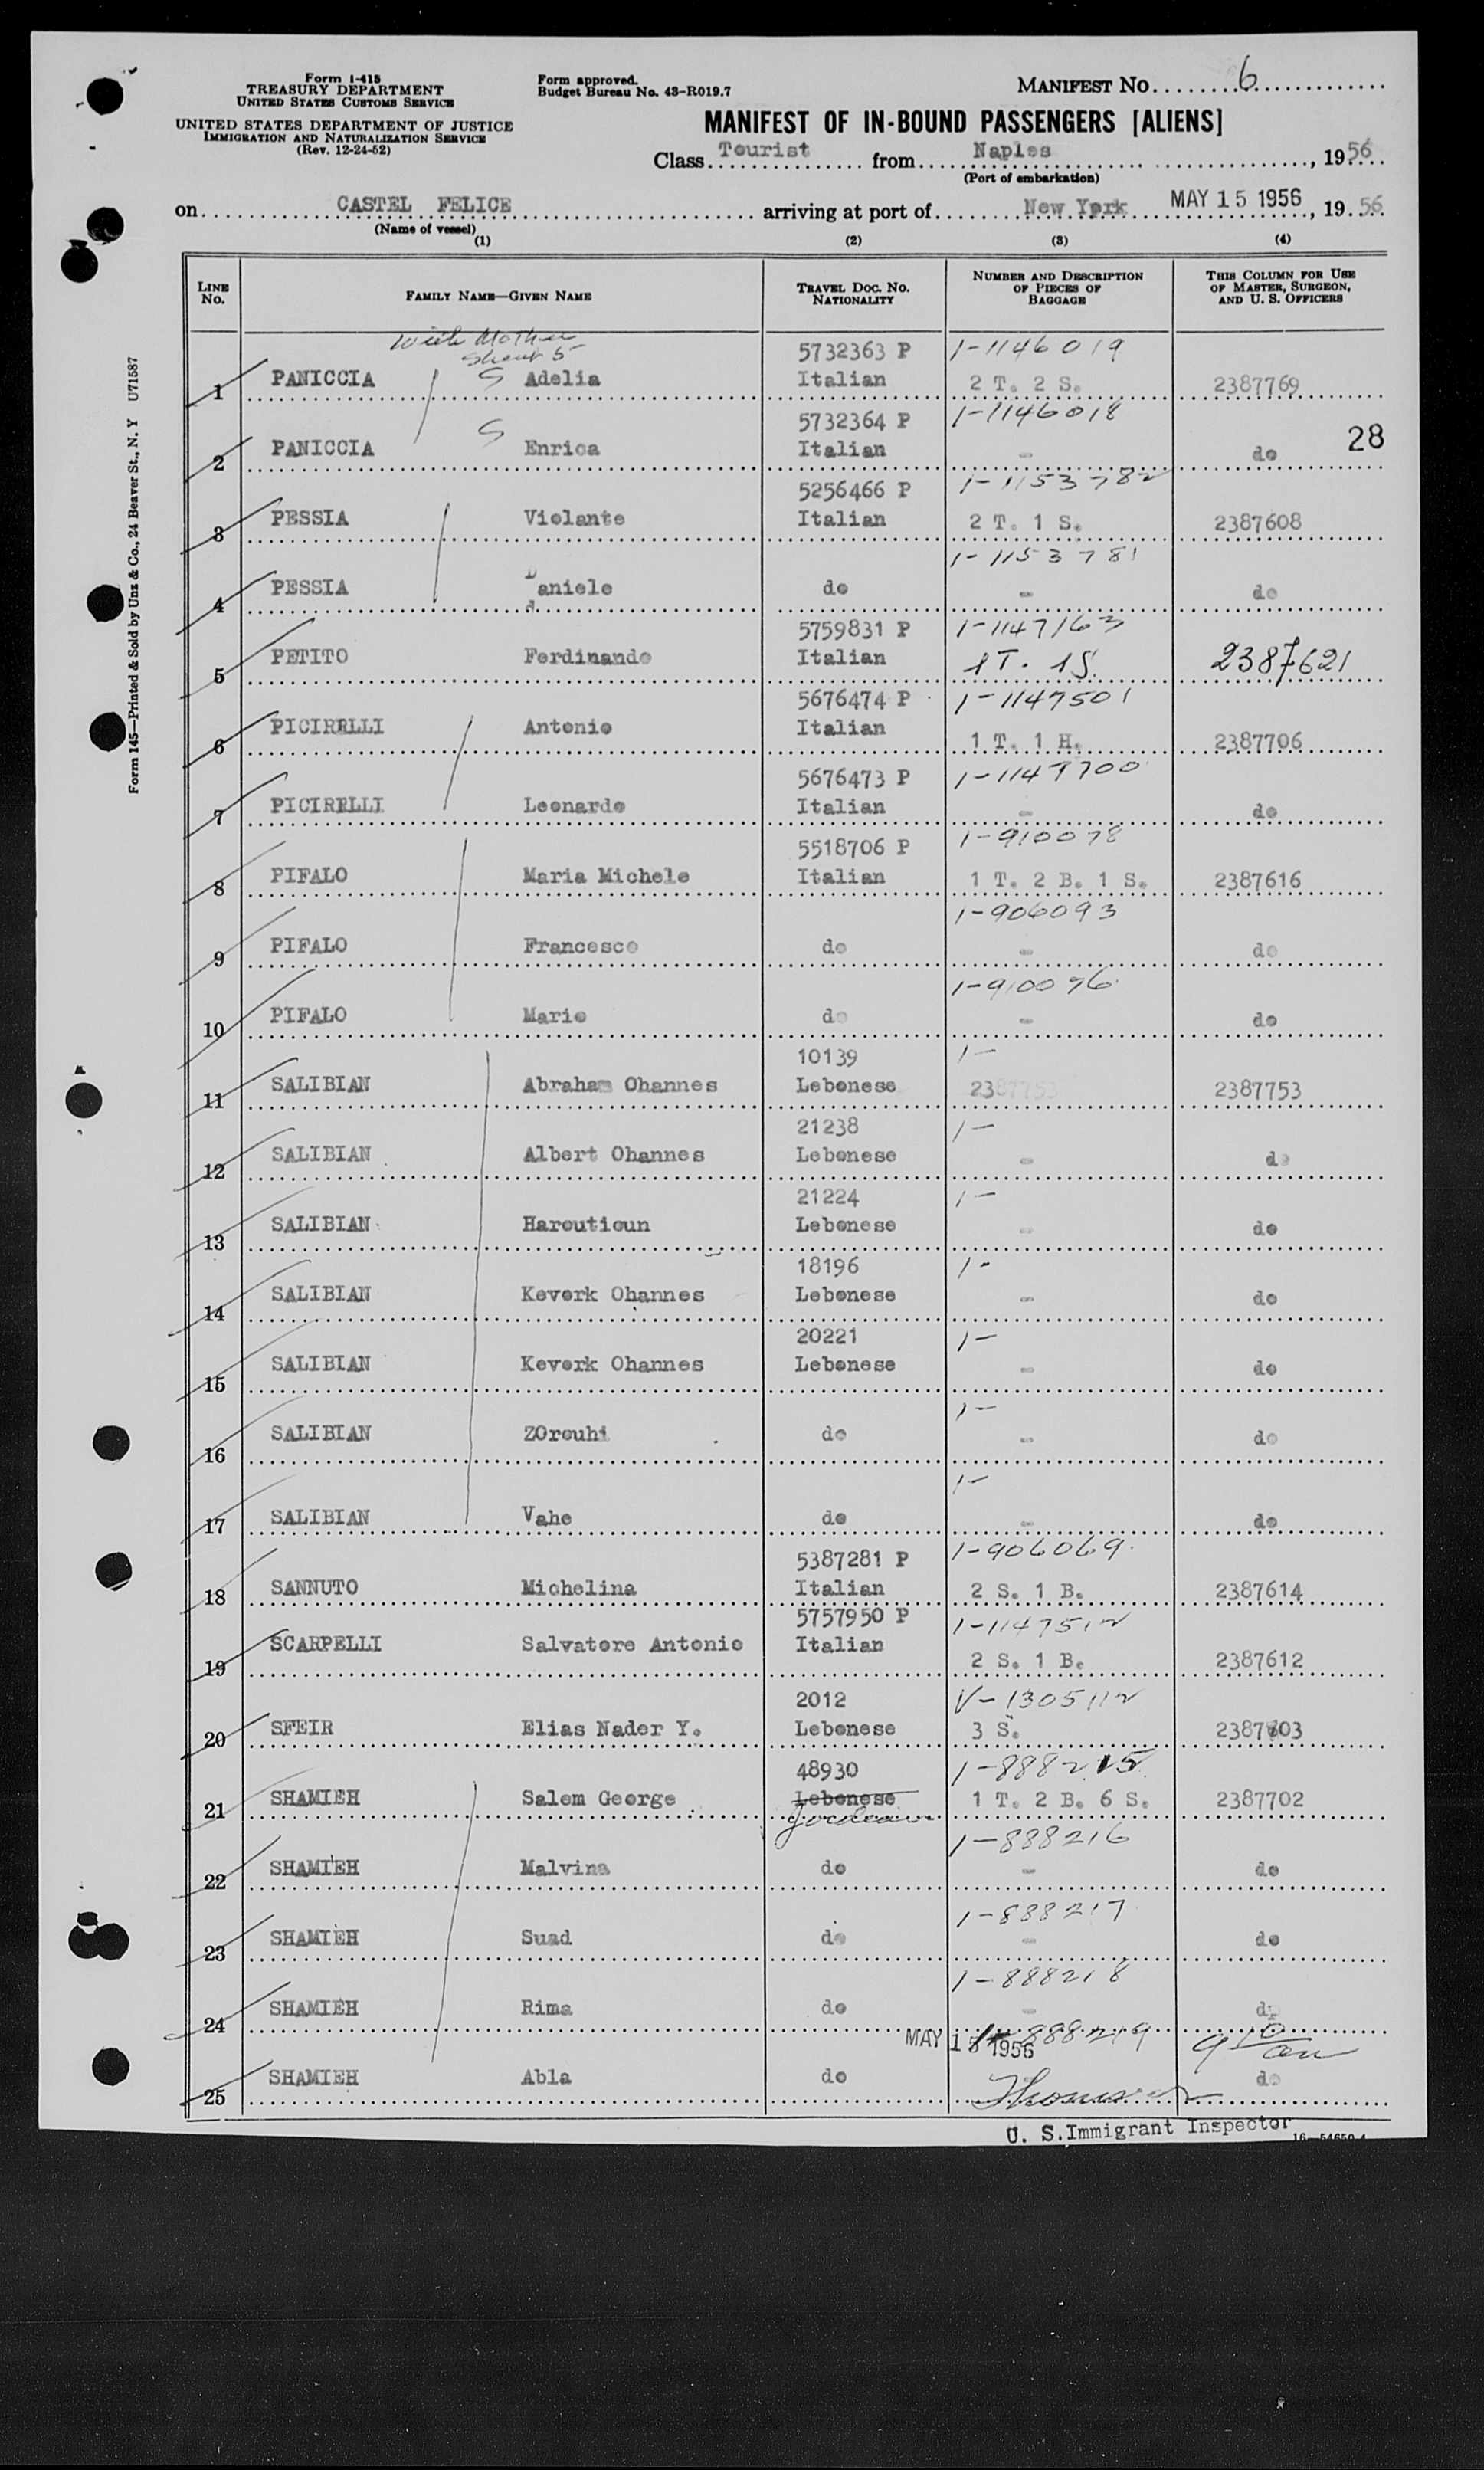 Form I-415
TREASURY DEPARTMENT
UNITED STATES CUSTOMS SERVICE
UNITED STATES DEPARTMENT OF JUSTICE
IMMIGRATION AND NATURALIZATION SERVICE
(Rev. 12-24-52)
Form approved.
Budget Bureau No. 43-R019.7
MANIFEST No. 6
MANIFEST OF IN-BOUND PASSENGERS [ALIENS]
Class Tourist from Naples, 1956
(Port of embarkation)
on CASTEL FELICE arriving at port of New York MAY 15 1956, 1956
(Name of vessel)
(1) (2) (3) (4)
LINE No. FAMILY NAME—GIVEN NAME TRAVEL DOC. No. NATIONALITY NUMBER AND DESCRIPTION OF PIECES OF BAGGAGE THIS COLUMN FOR USE OF MASTER, SURGEON, AND U. S. OFFICERS
with Mother
Sheet 5
5732363 P 1-1146019
1 PANICCIA S Adelia Italian 2 T. 2 S. 2387769
5732364 P 1-1146018
2 PANICCIA S Enrica Italian - do 28
5256466 P 1-1153782
3 PESSIA Violante Italian 2 T. 1 S. 2387608
1-1153781
4 PESSIA Daniele do - do
5759831 P 1-1147163
5 PETITO Ferdinando Italian 1T. 1S. 2387621
5676474 P 1-1147501
6 PICIRELLI Antonio Italian 1 T. 1 H. 2387706
5676473 P 1-1147700
7 PICIRELLI Leonardo Italian - do
5518706 P 1-910078
8 PIFALO Maria Michele Italian 1 T. 2 B. 1 S. 2387616
1-906093
9 PIFALO Francesco do - do
1-910076
10 PIFALO Mario do - do
10139 1-
11 SALIBIAN Abraham Ohannes Lebonese 2387753 2387753
21238 1-
12 SALIBIAN Albert Ohannes Lebonese - do
21224 1-
13 SALIBIAN Haroutioun Lebonese - do
18196 1-
14 SALIBIAN Kevork Ohannes Lebonese - do
20221 1-
15 SALIBIAN Kevork Ohannes Lebonese - do
1-
16 SALIBIAN ZOrouhi do - do
1-
17 SALIBIAN Vahe do - do
5387281 P 1-906069
18 SANNUTO Michelina Italian 2 S. 1 B. 2387614
5757950 P 1-1147512
19 SCARPELLI Salvatore Antonio Italian 2 S. 1 B. 2387612
2012 V-1305112
20 SFEIR Elias Nader Y. Lebonese 3 S. 2387803
48930 1-888215
21 SHAMIEH Salem George Lebonese 1 T. 2 B. 6 S. 2387702
Jordanian
1-888216
22 SHAMIEH Malvina do - do
1-888217
23 SHAMIEH Suad do - do
1-888218
24 SHAMIEH Rima do - do
MAY 15 1956 1-888219
25 SHAMIEH Abla do do
U. S. Immigrant Inspector
16—54650-4
Form 145—Printed & Sold by Unz & Co., 24 Beaver St., N. Y U71587